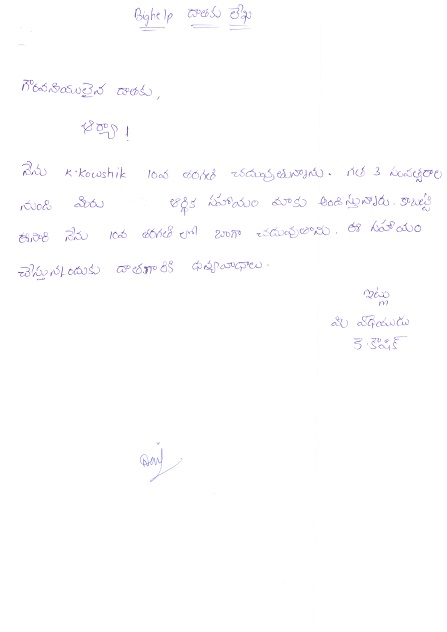 Bighelp దాతకు లేఖ
గౌరవనీయులైన దాతకు,
ఆర్యా !
నేను K.Kowshik 10వ తరగతి చదువుతున్నాను. గత 3 సంవత్సరాల
నుండి మీరు ఆర్థిక సహాయం మాకు అందిస్తున్నారు. కాబట్టి
ఈసారి నేను 10వ తరగతి లో బాగా చదువుతాను. ఈ సహాయం
చేస్తున్నందుకు దాతగారికి ధన్యవాదాలు.
ఇట్లు
మీ విధేయుడు
కె.కౌషిక్